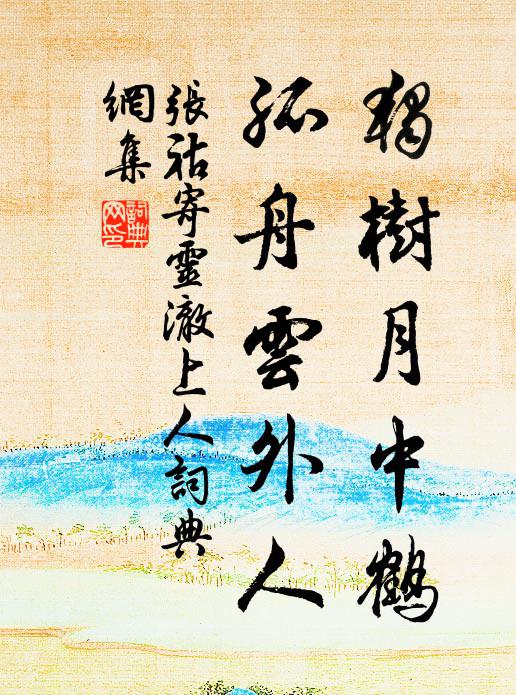 獨樹月中鶴
孤舟雲外人
張祜寄靈澈上人詞典
網集
詞典
网印